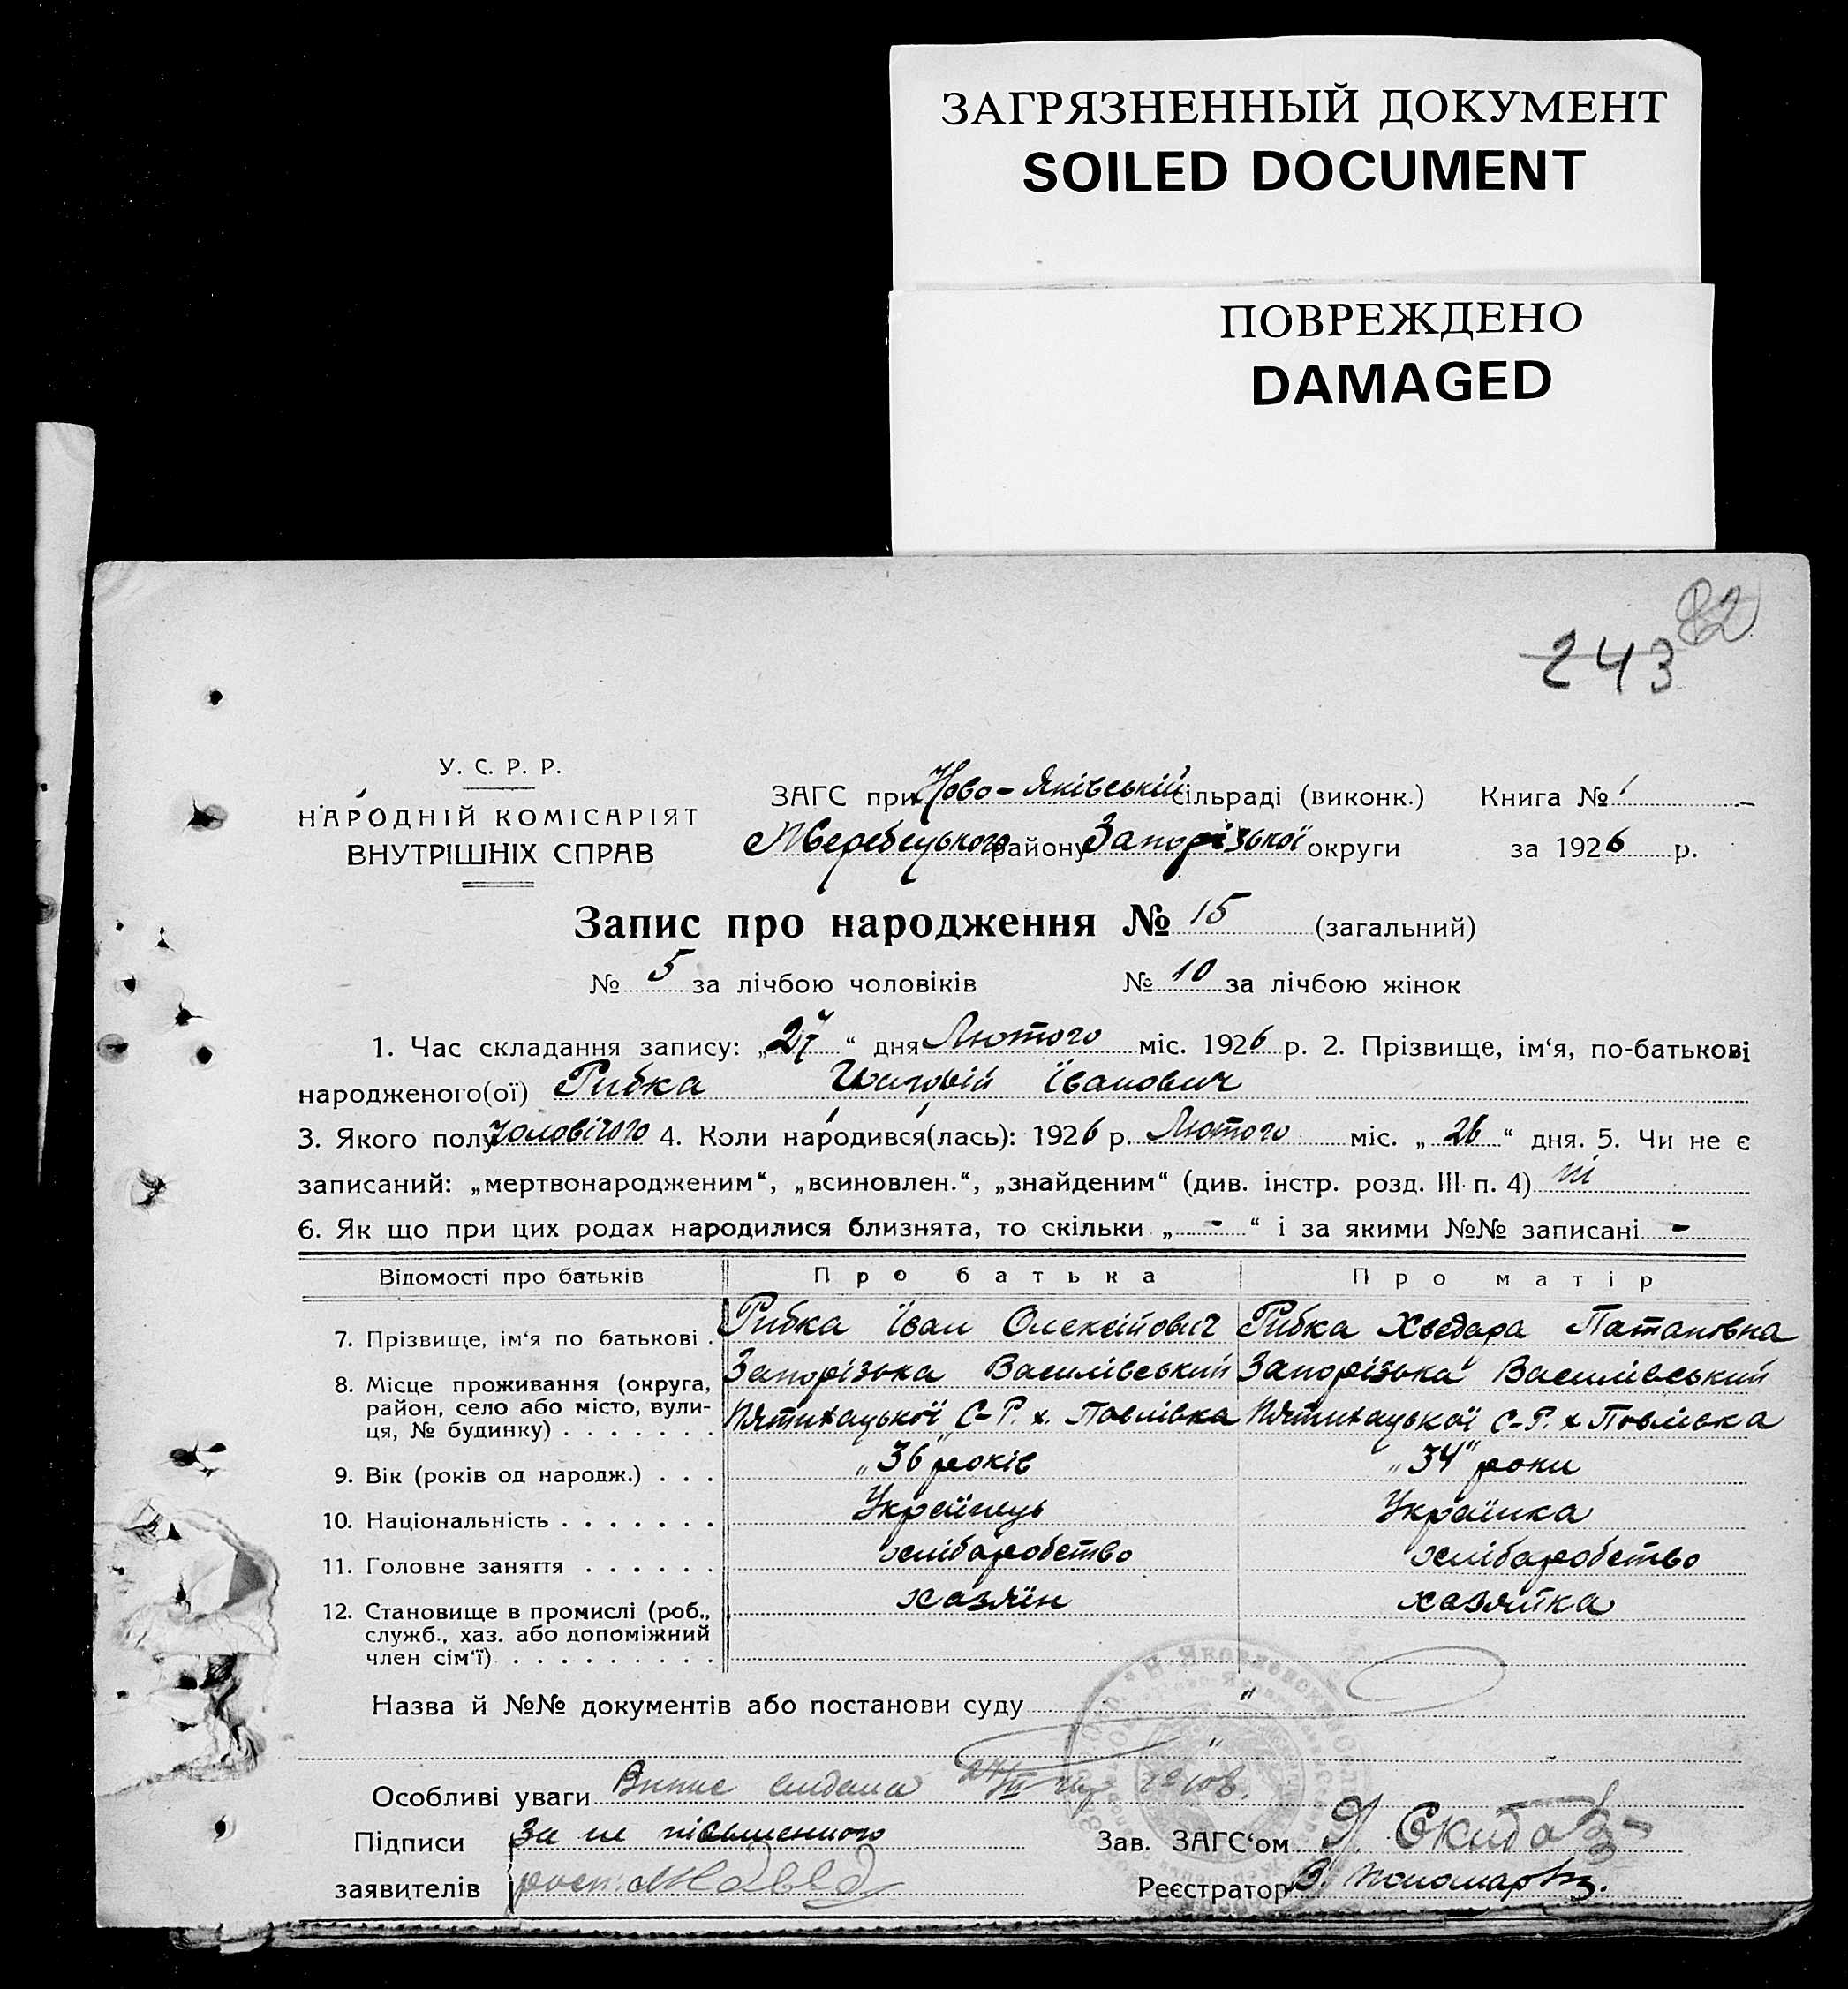 ЗАГРЯЗНЕННЫЙ ДОКУМЕНТ
SOILED DOCUMENT
ПОВРЕЖДЕНО
DAMAGED
82
243
У. С. Р. Р.
НАРОДНІЙ КОМІСАРІЯТ
ВНУТРІШНІХ СПРАВ
ЗАГС при Ново-Яківській сільраді (виконк.) Книга № 1
Жеребецького району Запорізької округи за 1926 р.
Запис про народження № 15 (загальний)
№ 5 за лічбою чоловіків № 10 за лічбою жінок
1. Час складання запису: „27“ дня Лютого міс. 1926 р. 2. Прізвище, ім‘я, по-батькові
народженого(ої) Рибка Іванович
3. Якого полу чоловічого 4. Коли народився(лась): 1926 р. Лютого міс. „26“ дня. 5. Чи не є
записаний: „мертвонародженим“, „всиновлен.“, „знайденим“ (див. інстр. розд. III п. 4) ні
6. Як що при цих родах народилися близнята, то скільки „ - “ і за якими №№ записані -
Відомості про батьків Про батька Про матір
7. Прізвище, ім‘я по батькові . Рибка Іван Олексійович Рибка Хведора Патановна
8. Місце проживання (округа, район, село або місто, вули-ця, № будинку) . . . . . . . Запорізька Василівський Запорізька Василівський
Пятихацької С-Р. х. Павлівка Пятихацької С-Р. х Повлівка
9. Вік (років од народж.) . . . „36“ років „34“ роки
10. Національність . . . . . . . Українець Українка
11. Головне заняття . . . . . . хлібаробство хлібаробство
12. Становище в промислі (роб., служб., хаз. або допоміжний член сім‘ї) . . . . . . . . . . хазяїн хазяйка
Назва й №№ документів або постанови суду "
"
Особливі уваги Випис видана
Підписи За не письменного Зав. ЗАГС‘ом Я. Скиба
заявителів Реєстратор В. Пономар